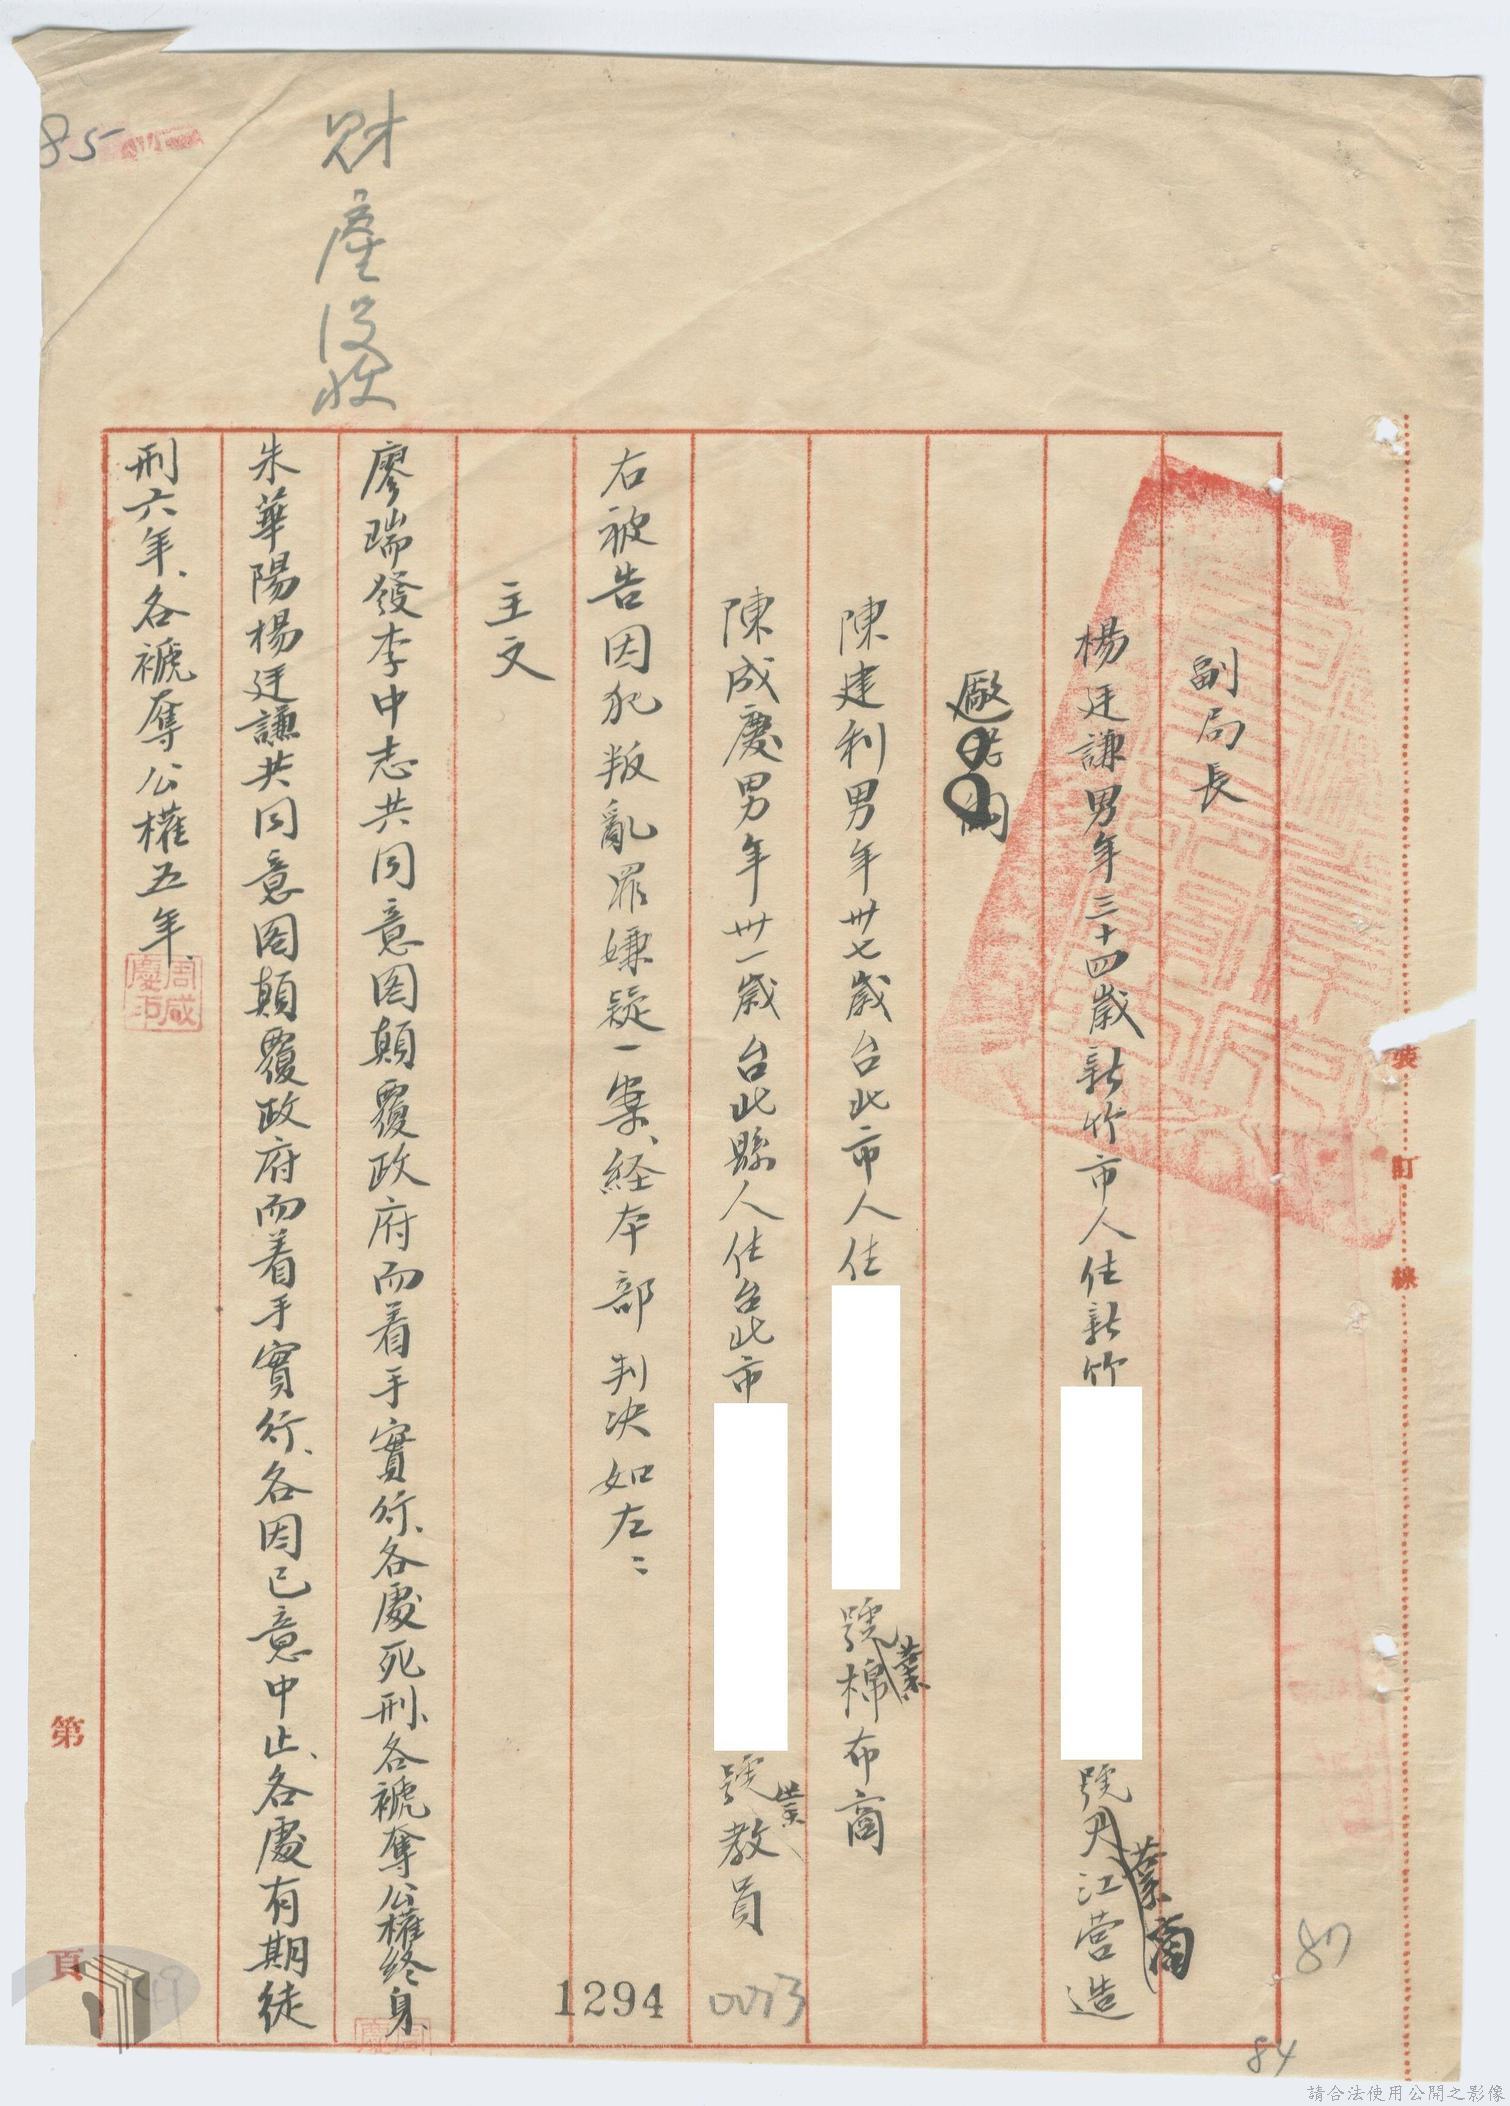 副局長
楊廷謙男年三十四歲新竹市人住新竹
號
業商
造
廠
陳建利男年卅七歲台北市人住
號棉布商
業
陳成慶男年卅一歲台北縣人住台北市
號教員
業
右被告因犯叛亂罪嫌疑一案、経本部判决如左：
主文
廖瑞發李中志共同意图顛覆政府而着手實行、各處死刑、各褫奪公權終身、
朱華陽楊廷謙共同意图顛覆政府而着手實行、各因己意中止、各處有期徒
刑六年、各褫奪公權五年、
財產没收
85
87
84
1294
0073
周咸慶印
裝訂線
第
頁
請合法使用公開之影像